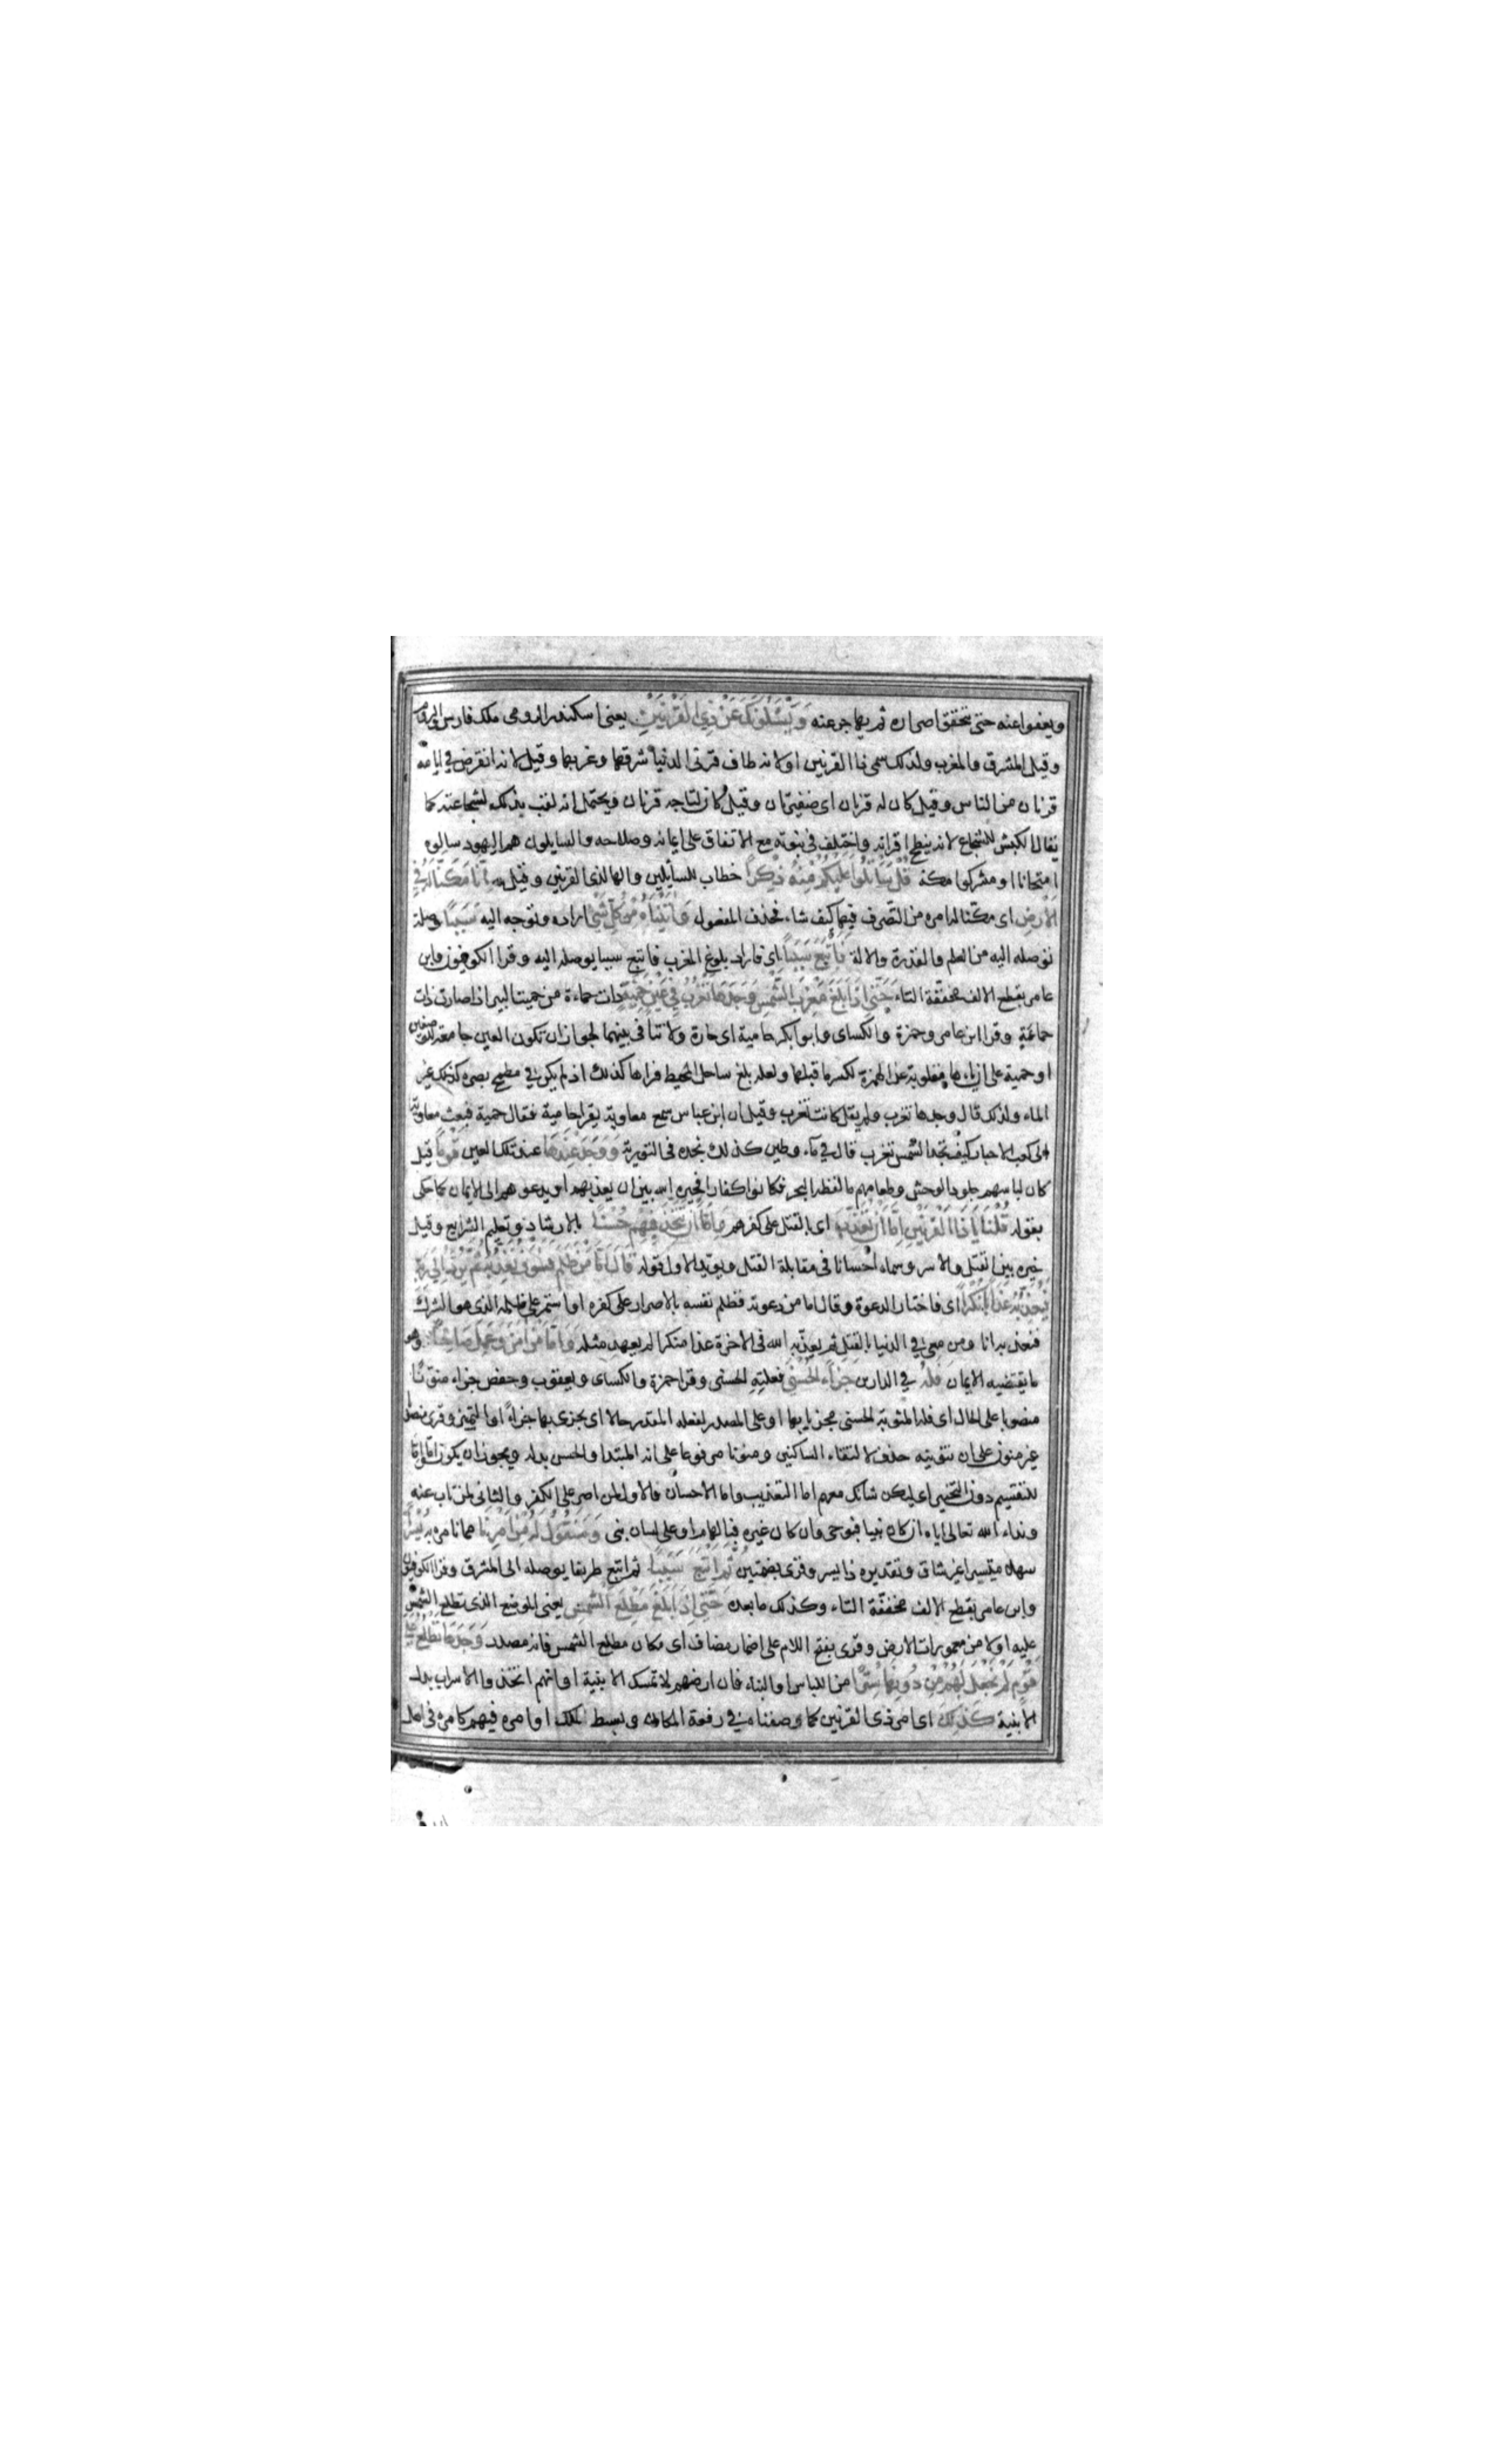 ويعفوا عنه حتى تحقق اصراره ثم يهاجر عنه وَيَسْئَلُونَكَ عَنْ ذِي الْقَرْنَيْنِ يعنى اسكندر الرومى ملك فارس والروم
وقيل المشرق والمغرب ولذلك سمى ذا القرنين اولانه طاف قرنى الدنيا شرقها وغربها وقيل لانه انقرض في ايامه
قرنان من الناس وقيل كان له قرنان اى ضفيرتان وقيل كان لتاجه قرنان ويحتمل انه لقب بذلك لشجاعته كما
يقال الكبش للشجاع لانه ينطح اقرانه واختلف فى نبوته مع الاتفاق على ايمانه وصلاحه والسايلون هم اليهود سالوه
امتحانا او مشركوا مكة قُلْ سَاَتْلُوا عَلَيْكُمْ مِنْهُ ذِكْرًا خطاب للسائلين والها لذى القرنين وقيل لله اِنَّا مَكَّنَّا لَهُ فِي
الْاَرْضِ اى مكنا له امره من التصرف فيها كيف شاء فحذف المفعول وَاٰتَيْنَاهُ مِنْ كُلِّ شَيْءٍ اراده وتوجه اليه سَبَبًا وصلة
توصله اليه من العلم والقدرة والالة فَاَتْبَعَ سَبَبًا اى فاراد بلوغ المغرب فاتبع سببا يوصله اليه وقرا الكوفيون وابن
عامر بقطع الالف مخففة التاء حَتّٰى اِذَا بَلَغَ مَغْرِبَ الشَّمْسِ وَجَدَهَا تَغْرُبُ فِي عَيْنٍ حَمِئَةٍ ذات حماءة من حميت البير اذا صارت ذات
حمائة وقرا ابن عامر وحمزة والكساى وابوا بكر حامية اى حارة ولا تنافى بينهما لجواز ان تكون العين جامعة للوصفين
او حمية على ان ياءها مقلوبة عن الهمزة لكسر ما قبلها ولعله بلغ ساحل المحيط فراها كذلك اذ لم يكن في مطمح بصره كذلك غير
الماء ولذلك قال وجدها تغرب ولم يقل كانت تغرب وقيل ان ابن عباس سمع معاوية يقرا حامية فقال حمية فبعث معاوية
الى كعب الاحبار كيف تجد الشمس تغرب قال في ماء وطين كذلك نجده فى التورية وَوَجَدَ عِنْدَهَا عند تلك العين قَوْمًا قيل
كان لباسهم جلود الوحش وطعامهم ما لفظه البحر فكانوا كفارا فخيره الله بين ان يعذبهم او يدعوهم الى الايمان كما حكى
بقوله قُلْنَا يَا ذَا الْقَرْنَيْنِ اِمَّا اَنْ تُعَذِّبَ اى بالقتل على كفرهم وَاِمَّا اَنْ تَتَّخِذَ فِيهِمْ حُسْنًا بالارشاد وتعليم الشرايع وقيل
خيره بين القتل والاسر وسماه احسانا فى مقابلة القتل ويؤيد الاول قوله قَالَ اَمَّا مَنْ ظَلَمَ فَسَوْفَ نُعَذِّبُهُ ثُمَّ يُرَدُّ اِلٰى رَبِّهِ
فَيُعَذِّبُهُ عَذَابًا نُكْرًا اى فاختار الدعوة وقال اما من دعوته فظلم نفسه بالاصرار على كفره او استمر على ظلمه الذى هو الشرك
فنعذبه انا ومن معى في الدنيا بالقتل ثم يعذبه الله فى الاخرة عذابا منكرا لم يعهد مثله وَاَمَّا مَنْ اٰمَنَ وَعَمِلَ صَالِحًا وهو
ما يقتضيه الايمان فَلَهُ في الدارين جَزَاءً الْحُسْنٰى فعلته الحسنى وقرا حمزة والكساى ويعقوب وحفص جزاء منوّنا
منصوبا على الحال اى فله المثوبة الحسنى مجزيا بها او على المصدر لفعله المقدر حالا اى يجزى بها جزاءً او التمييز وقرى منصوبا
غير منون على ان تنوينه حذف لالتقاء الساكنين ومنونا مرفوعا على انه المبتدا والحسنى بدله ويجوز ان يكون اما واما
للتقسيم دون التخيير اى ليكن شأنك معهم اما التعذيب واما الاحسان فالاول لمن اصر على الكفر والثانى لمن تاب عنه
ونداء الله تعالى اياه ان كان نبيا فبوحى وان كان غيره فبالهام او على لسان نبى وَسَنَقُولُ لَهُ مِنْ اَمْرِنَا مما نامر به يُسْرًا
سهلا متيسرا غير شاق وتقديره ذا يسر وقرى بضمتين ثُمَّ اَتْبَعَ سَبَبًا ثم اتبع طريقا يوصله الى المشرق وقرا الكوفيون
وابن عامر بقطع الالف مخففة التاء وكذلك ما بعده حَتّٰى اِذَا بَلَغَ مَطْلِعَ الشَّمْسِ يعنى الموضع الذى تطلع الشمس
عليه اولا من معمورات الارض وقرى بفتح اللام على اضمار مضاف اى مكان مطلع الشمس فانه مصدر وَجَدَهَا تَطْلُعُ عَلٰى
قَوْمٍ لَمْ نَجْعَلْ لَهُمْ مِنْ دُونِهَا سِتْرًا من اللباس او البناء فان ارضهم لا تمسك الابنية او انهم اتخذوا الاسراب بدل
الابنية كَذٰلِكَ اى امر ذى القرنين كما وصفناه في رفعة المكان وبسط الملك او امره فيهم كامره فى اهل